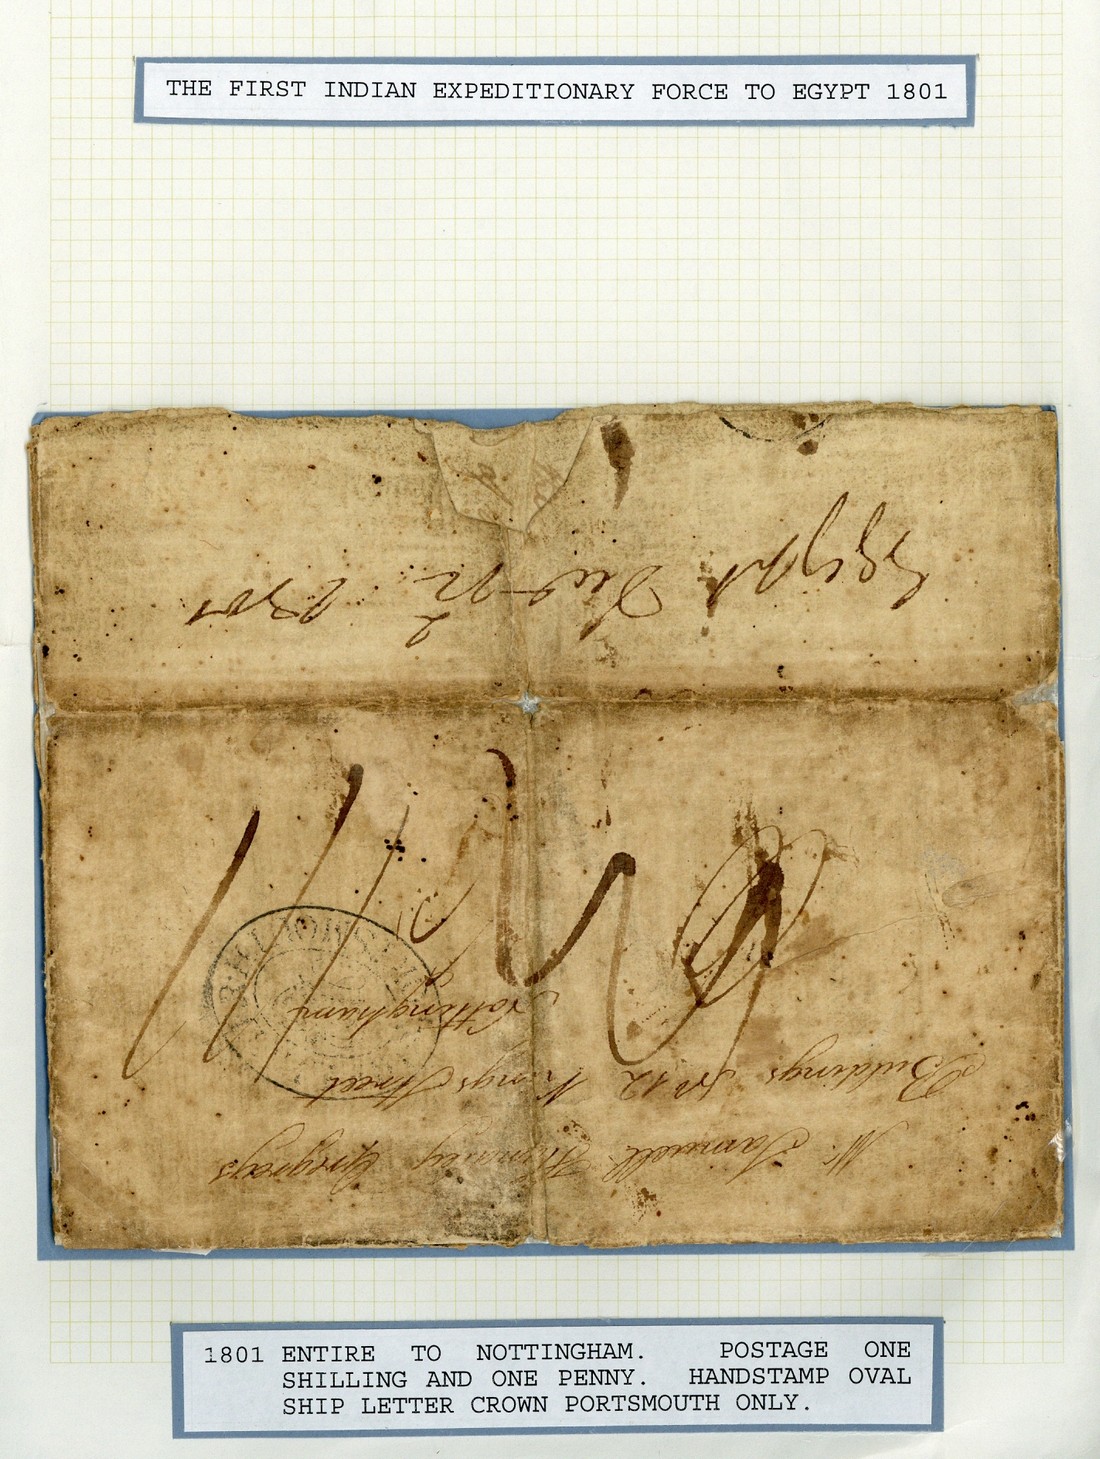 THE FIRST INDIAN EXPEDITIONARY FORCE TO EGYPT 1801
Egypt Dec 12 1801
Mr. Samuell Gregorys
Buildings No 12 Kings Street
Nottingham
1801 ENTIRE TO NOTTINGHAM. POSTAGE ONE
SHILLING AND ONE PENNY. HANDSTAMP OVAL
SHIP LETTER CROWN PORTSMOUTH ONLY.